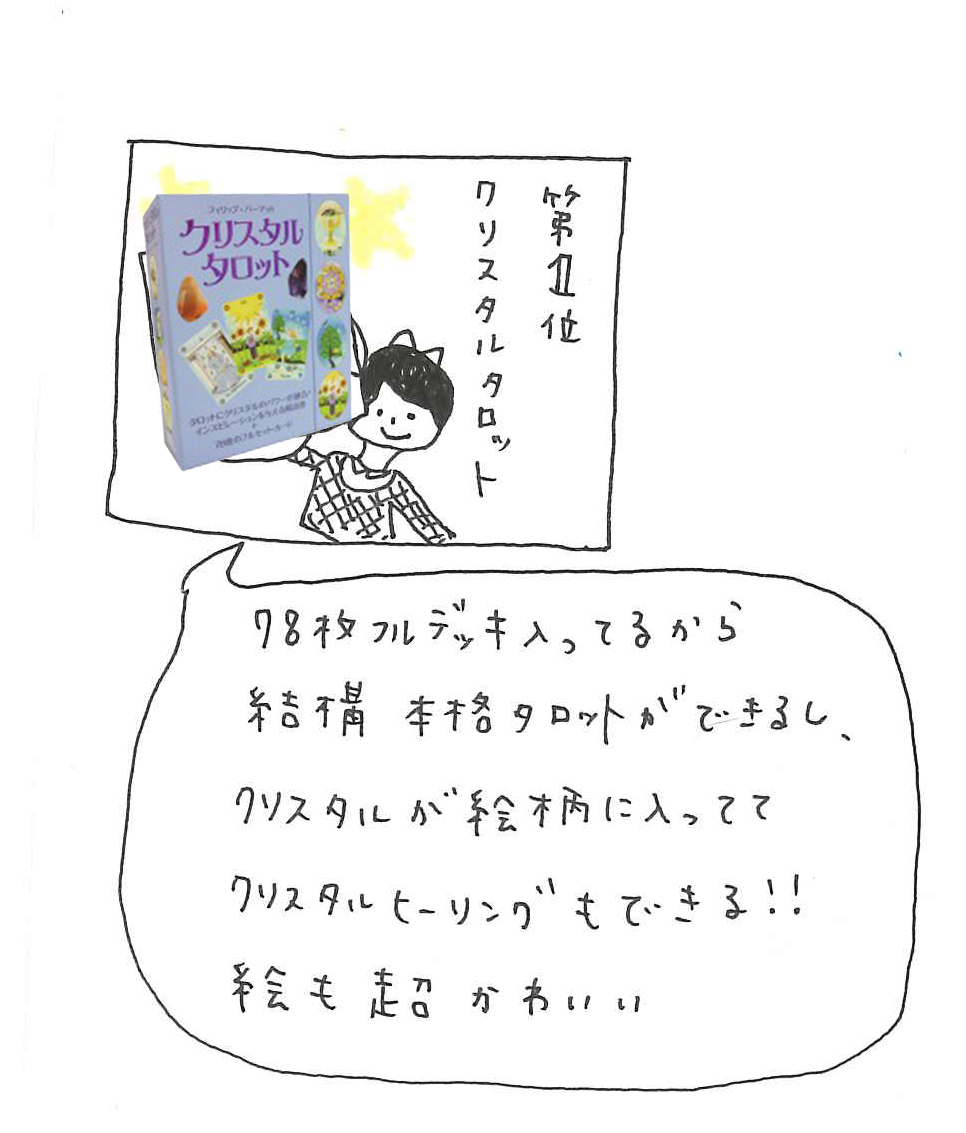 第1位
クリスタルタロット
フィリップ・パーマット
クリスタル
タロット
タロットにクリスタルのパワーが宿る!
インスピレーションを与える解説書
+
78枚のフルセットカード
78枚フルデッキ入ってるから
結構 本格タロットができるし、
クリスタルが絵柄に入ってて
クリスタルヒーリングもできる!!
絵も超かわいい